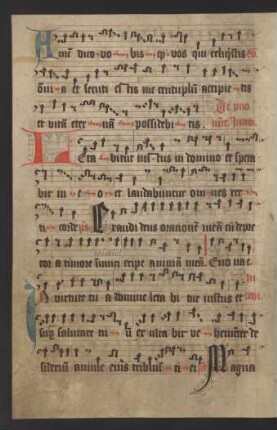 Amē dico vobis qꝫ vos qui reliq̄stis eo
om̄ia et secuti estis me centuplū accipietis
et vitā eternā possidebitis. De vno
mre. Introi.
Letabitur iustus in domino et spera
bit in eo et laudabuntur omnes rec
ti corde ps Exaudi deus oracionē meā cū depre
cor a timore inimici eripe animā meā. Euouae
In virtute tua domine letabitur iustus et
sup salutare tuū exultabit vehementer de
siderium anime eius tribuisti ei ps Magna